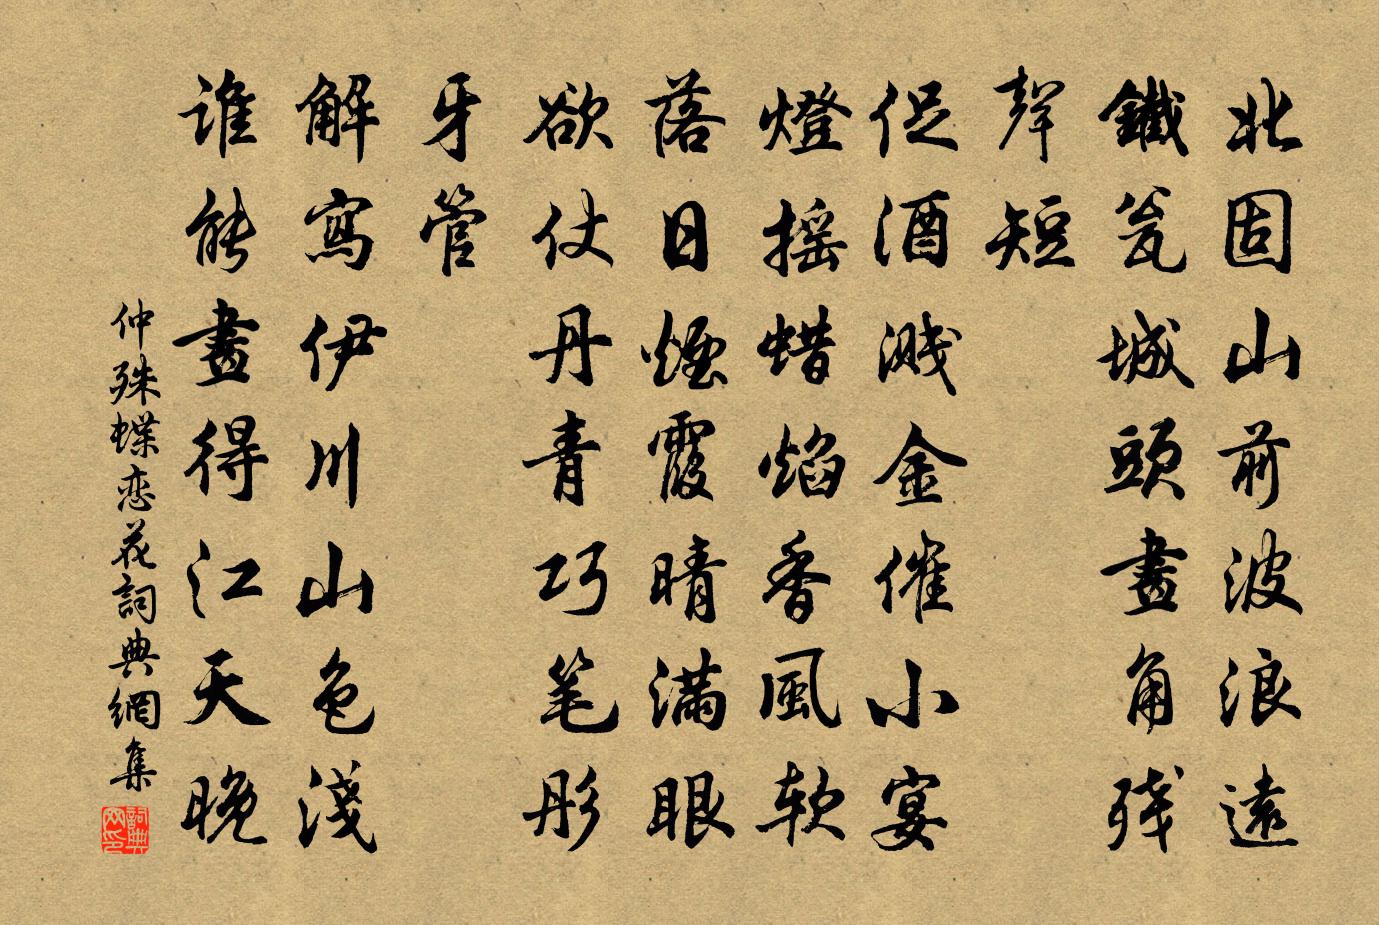 北固山前波浪遠
鐵瓮城頭畫角残
聲短
促酒溅金催小宴
燈摇蜡焰香風软
落日煙霞晴满眼
欲仗丹青巧笔彤
牙管
解寫伊川山色淺
谁能畫得江天晚
仲殊蝶恋花詞典網集
詞典網印